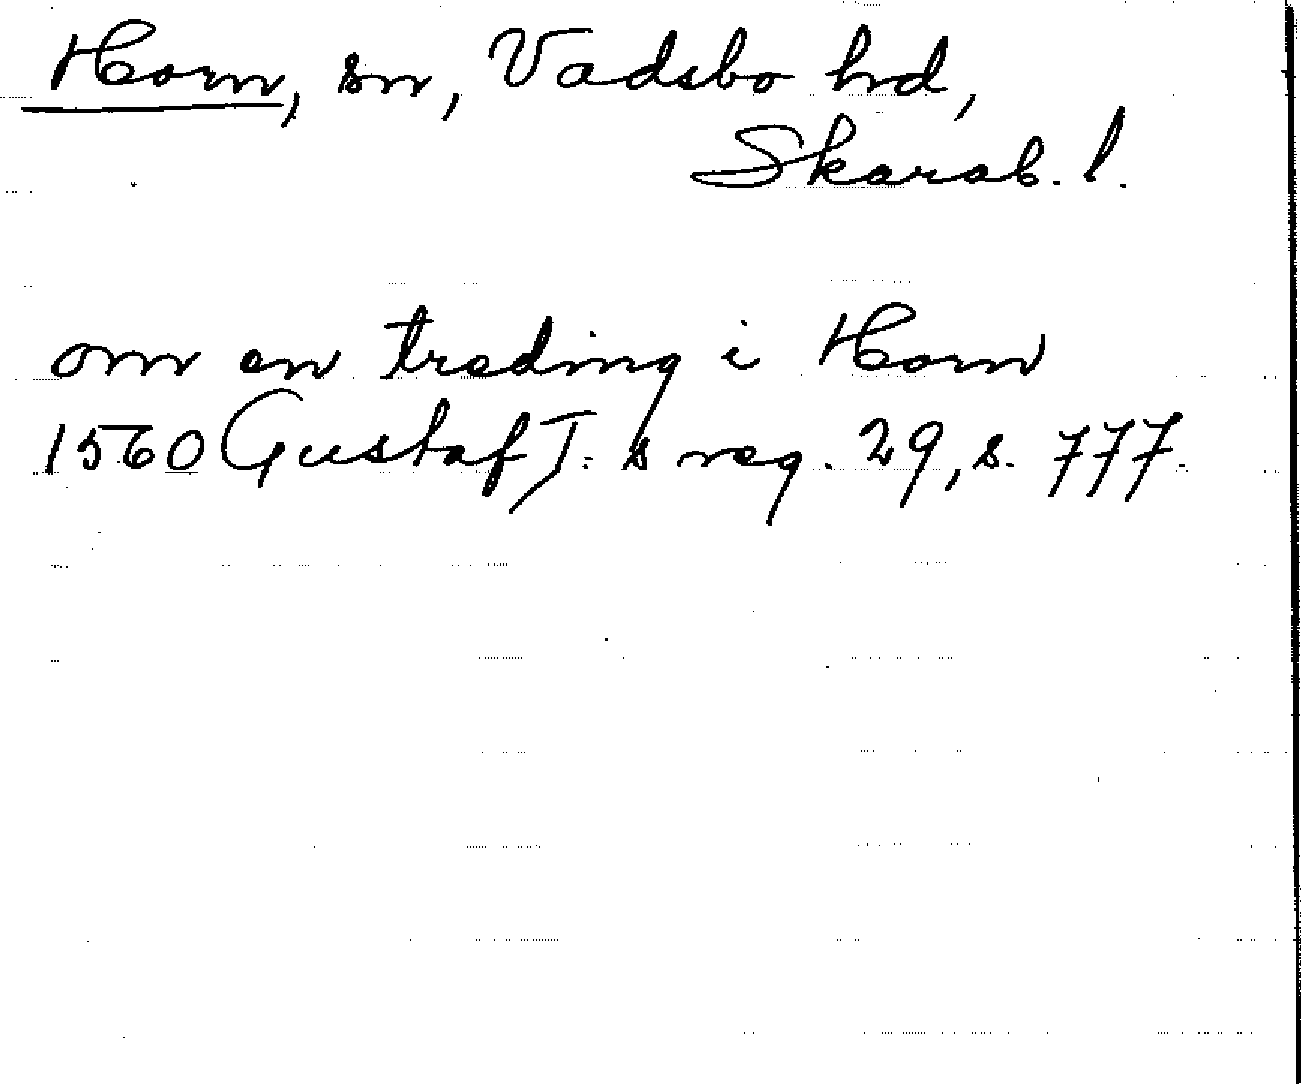 Horn, sn, Vadsbo hd,
Skarab. l.
om en treding i Horn
1560 Gustaf I:s reg. 29, s. 777.